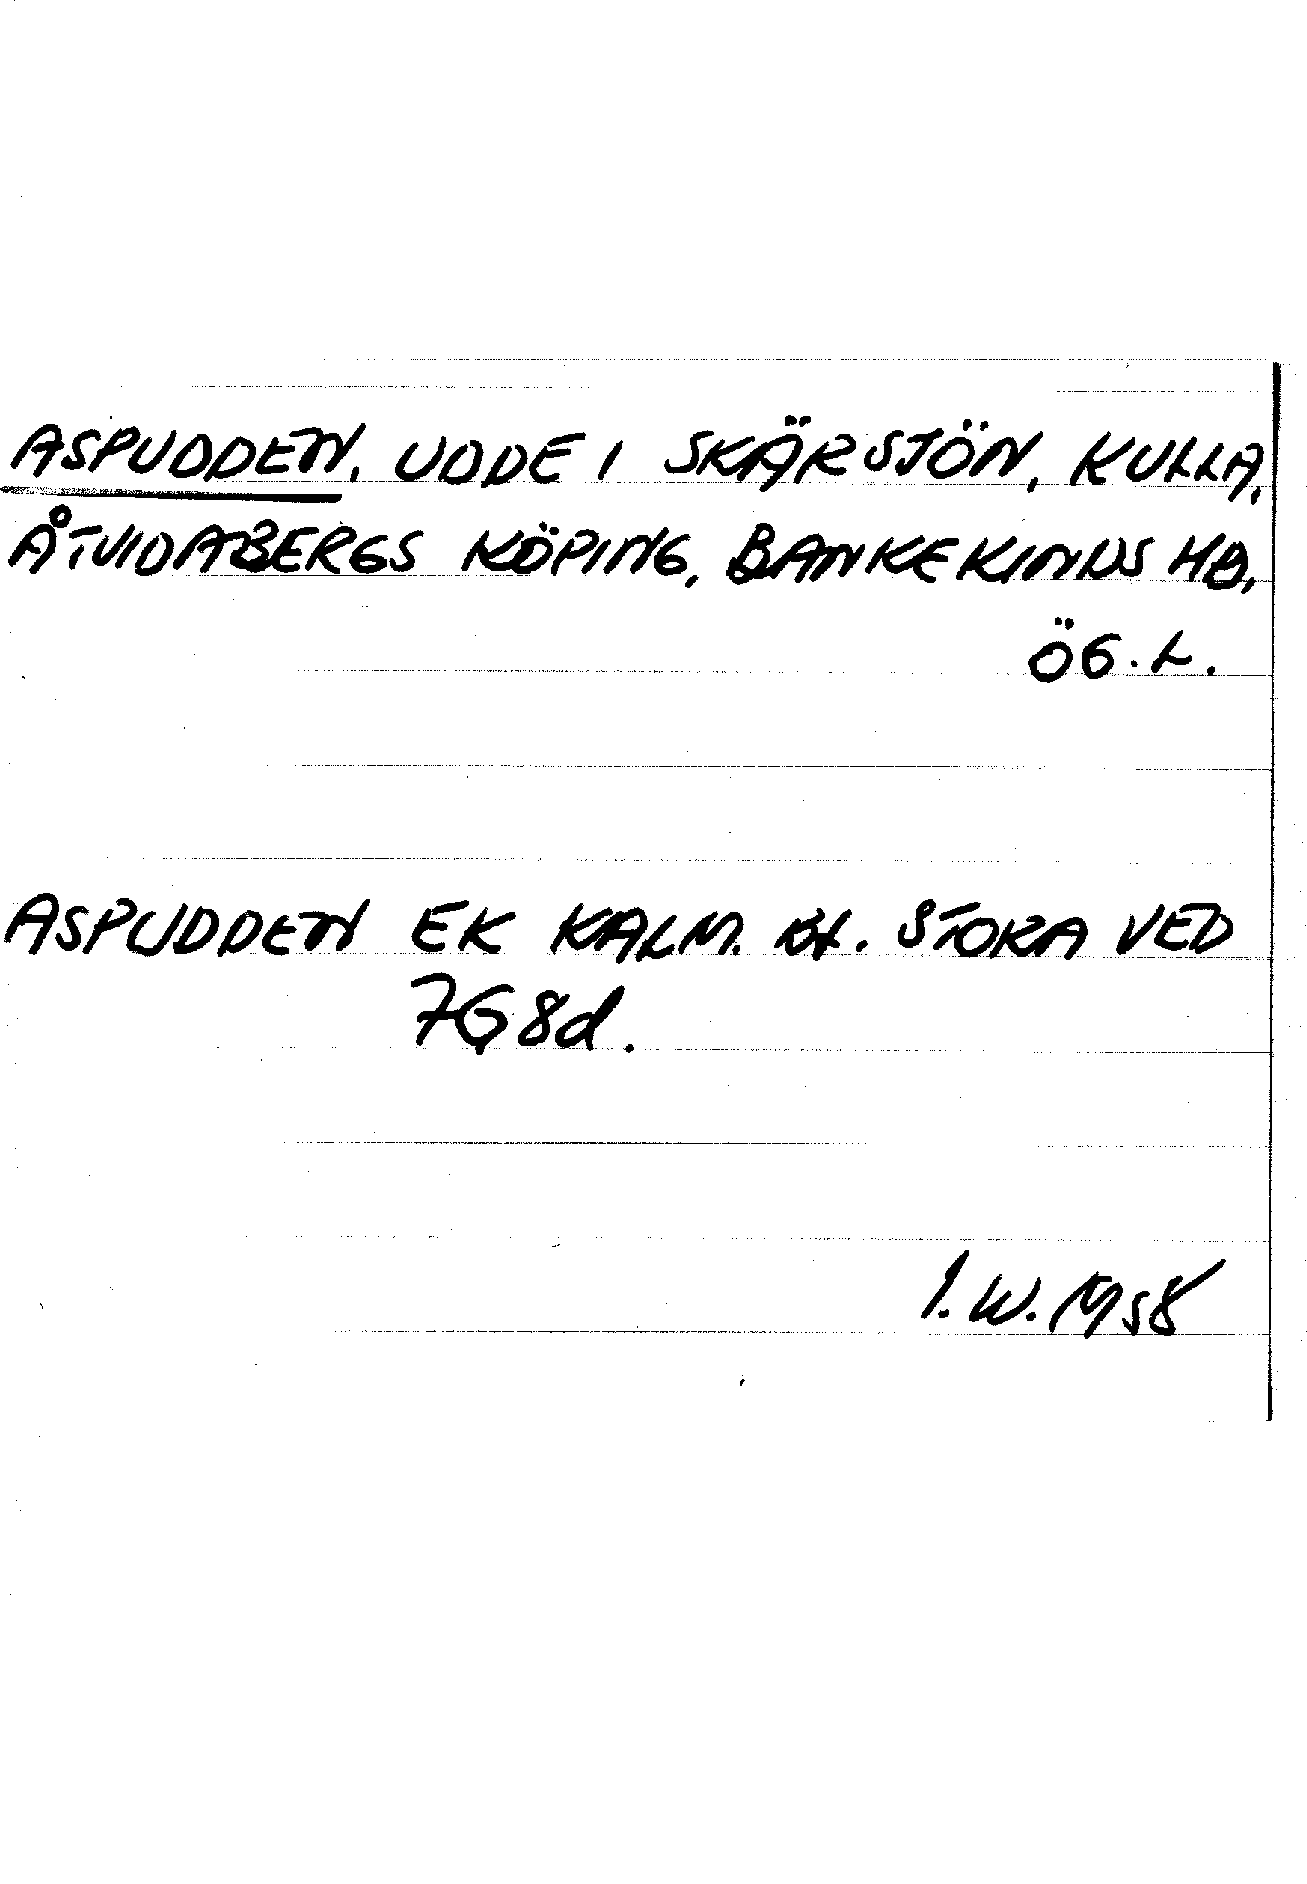 ASPUDDEN, UDDE I SKÄRSJÖN, KULLA,
ÅTVIDABERGS KÖPING, BANKEKINDS HD,
ÖG. L.
ASPUDDEN EK KALM. BL. STORA VED
7G8d.
I. W. M58